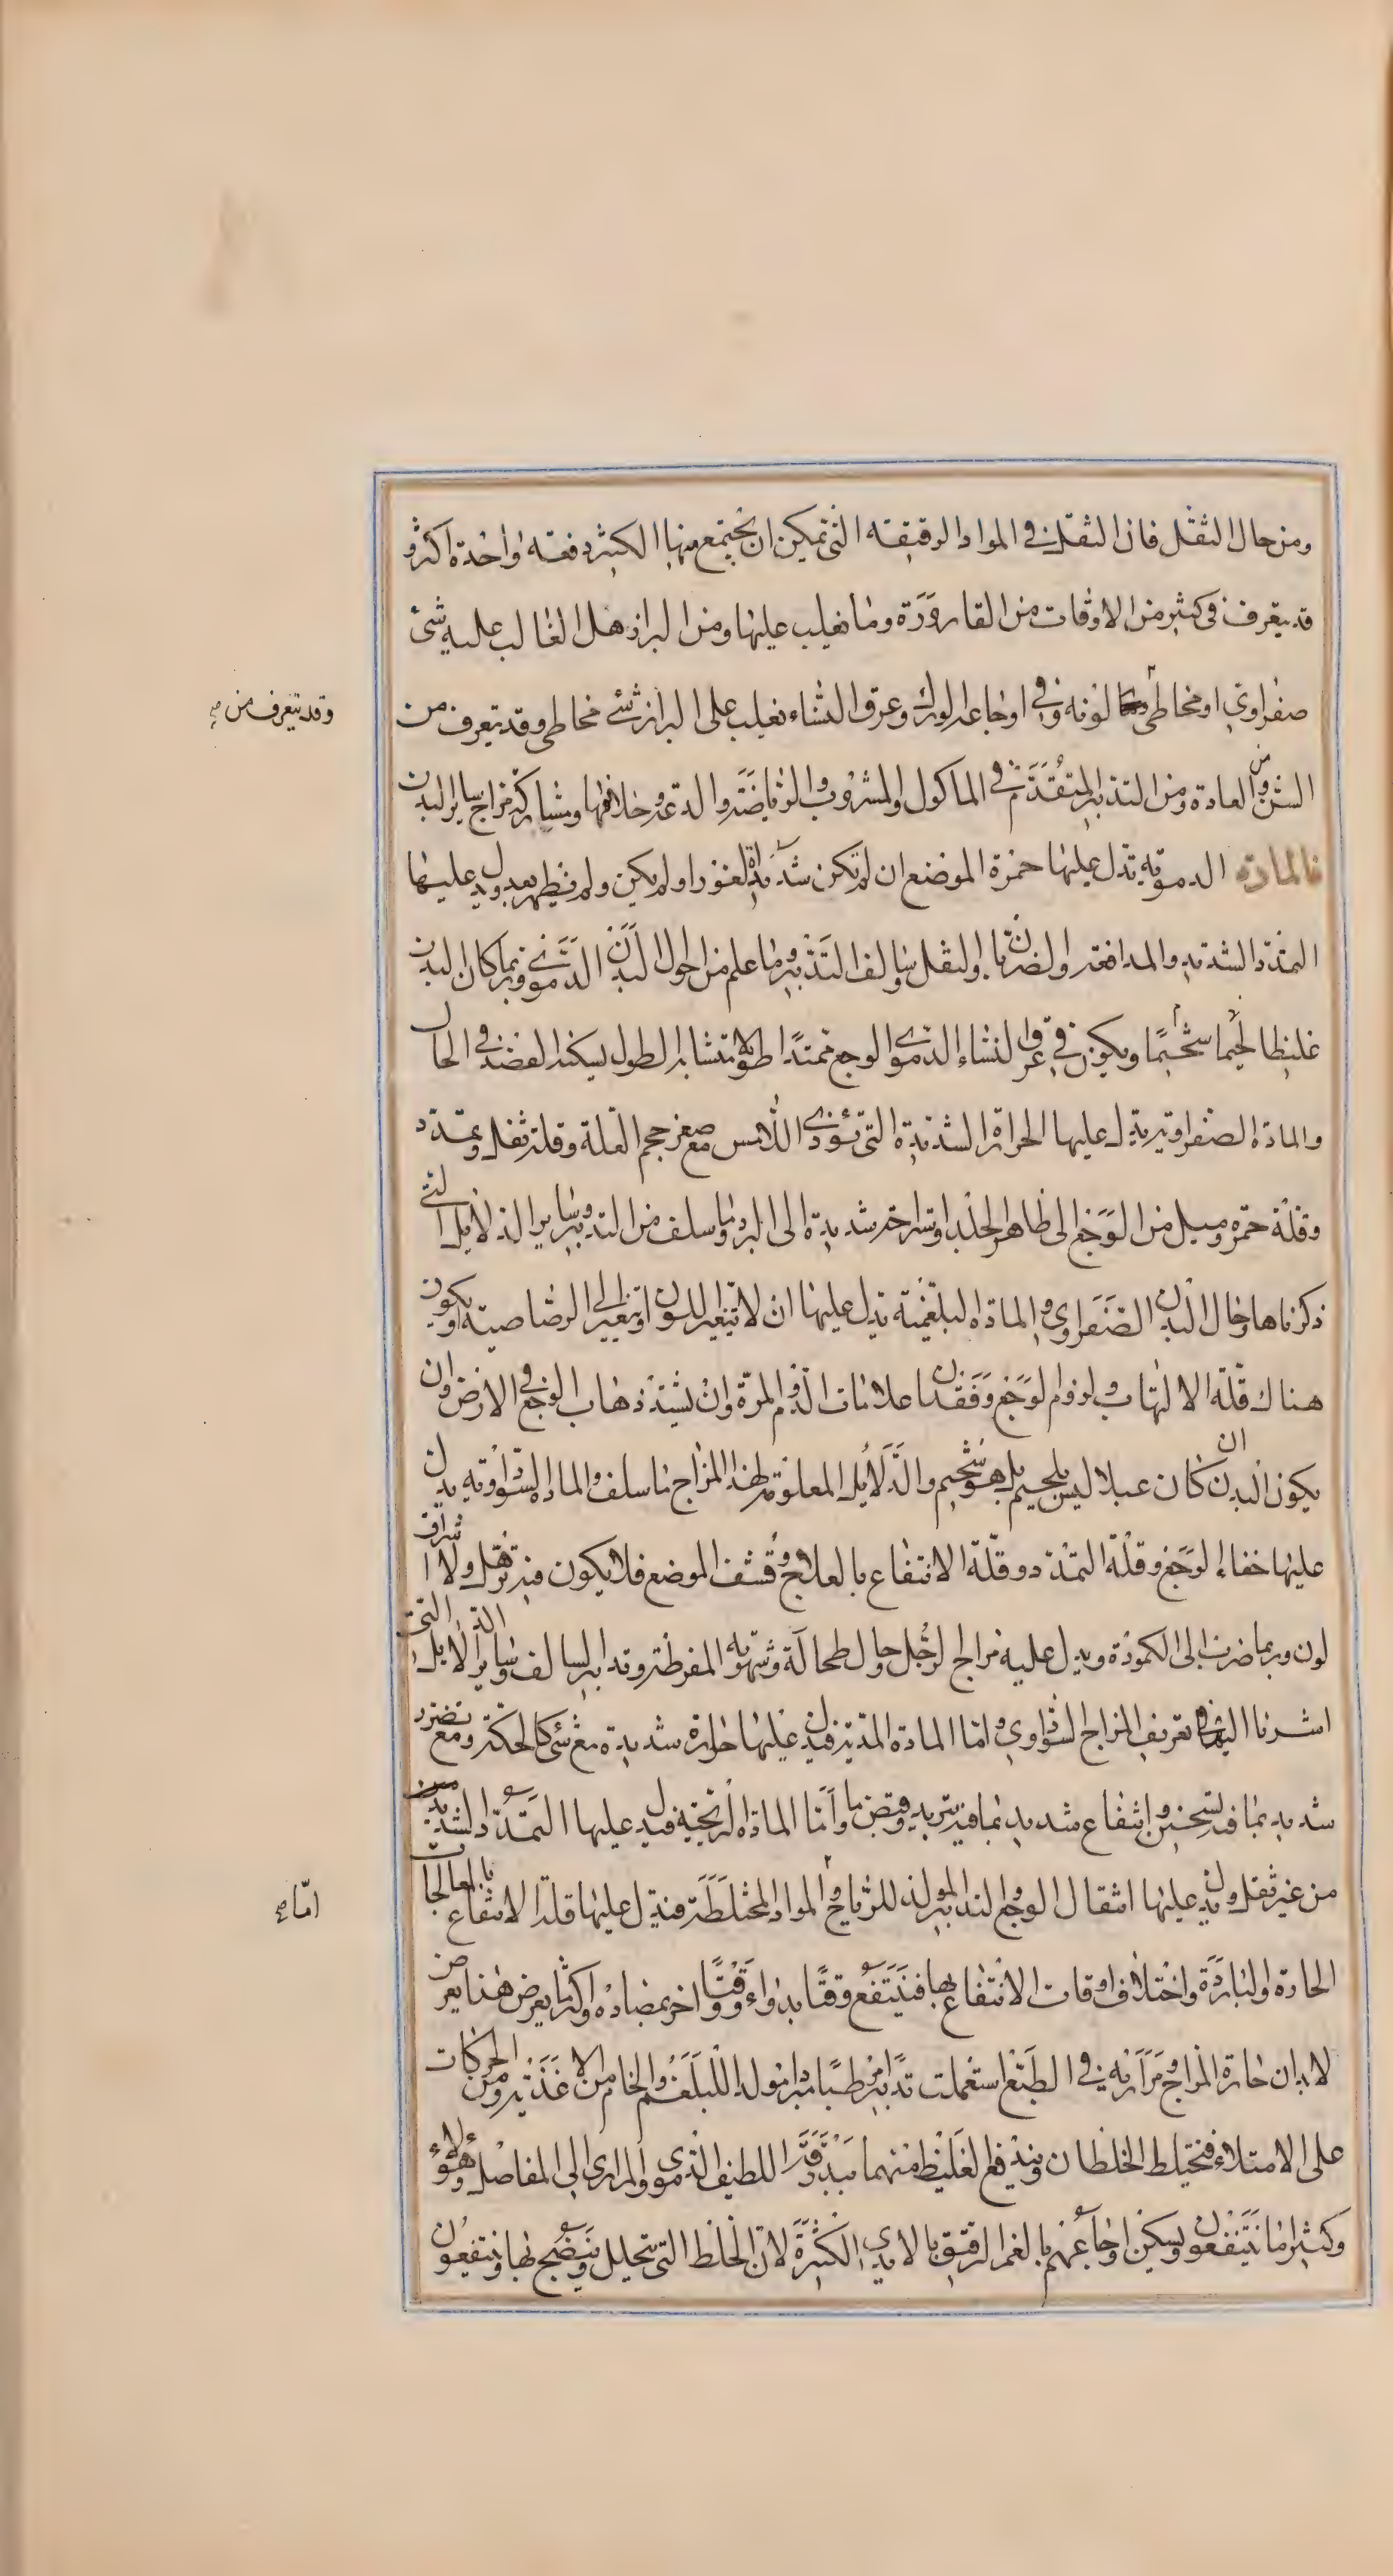 ومن حال الثقل فان الثقل في المواد الرقيقه التي تمكن ان يجتمع منها الكثير دفعه واحدة اكثر و
قد يتعرف في كثير من الاوقات من القارورة وما يغلب عليها ومن البراز هل الغالب عليه شئ
صفراوي او مخاطي لونه وفي اوجاع الورك وعرق النساء يغلب على البراز شئ مخاطي وقد يتعرف من
وقد يتعرف من صح
السن ومن العادة ومن التدبير المتقدم في الماكول والمشروب والرياضة والدعة وخلافها ومشاركة مزاج ساير البدن
فالمادة الدموية تدل عليها حمرة الموضع ان لم تكن شديدة الغور او لم يكن ولم يظهر بعد ويدل عليها
التمدد الشديد والمدافعة والضربان والثقل وسالف التدبير وما علم من احوال البدن الدموي وربما كان البدن
غليظا لحيما شحيما ويكون في عرق النساء الدموي الوجع ممتدا طولا متشابه الطول يسكنه الفصد في الحال
والمادة الصفراوية يدل عليها الحرارة الشديدة التي تؤذي اللامس مع صغر حجم العلة وقلة ثقل وتمدد
وقلة حمرة وميل من الوجع الى ظاهر الجلد واستراحة شديدة الى البرد وما سلف من التدبير وساير الدلايل التي
ذكرناها وحال البدن الصفراوي والمادة البلغمية تدل عليها ان لا يتغير اللون او يتغير الى الرصاصية او يكون
هناك قلة الالتهاب ولزوم الوجع وفقدان علامات الدم والمرة وان يشتد ذهاب الوجع في الارض وان
يكون البدن ان كان عبلا ليس بلحيم بل هو شحيم والدلايل المعلومة لهذا المزاج ما سلف والمادة السوداوية يدل
عليها خفاء الوجع وقلة التمدد وقلة الانتفاع بالعلاج وقشف الموضع فلا يكون فيه ترهل ولا اشراق
لون وربما ضرب الى الكمودة ويدل عليه مزاج الرجل وحال طحاله وشهوته المفرطة وتدابيره السالف وساير الدلايل التي
اشرنا اليها في تعريف المزاج السوداوي واما المادة المدية فيدل عليها حرارة شديدة مع شئ كالحكة ومع تضرر
شديد بما فيه تسخين وانتفاع شديد بما فيه تبريد وقبض ما واما المادة الريحية فيدل عليها التمدد الشديد
من غير ثقل ويدل عليها انتقال الوجع والتدبير المولد للرياح واما المواد المختلطة فيدل عليها قلة الانتفاع بالمعالجات
اما صح
الحادة والباردة واختلاف اوقات الانتفاع بها فينتفع وقتا بدواء ووقتا اخر بمضاده واكثر ما يعرض هذا يعرض
لابدان حارة المزاج ومرارية في الطبع استعملت تدبيرا مرطبا مبردا مولدا للبلغم والخام من الاغذية ومن الحركات
على الامتلاء فيختلط الخلطان ويندفع الغليظ منهما ببدرقة اللطيف الدموي والمراري الى المفاصل وهؤلاء
وكثيرا ما ينتفعون ويسكن اوجاعهم بالغمز الرقيق بالايدي الكثيرة لان الخلط التي يتحلل وينضج بها وينتفعون